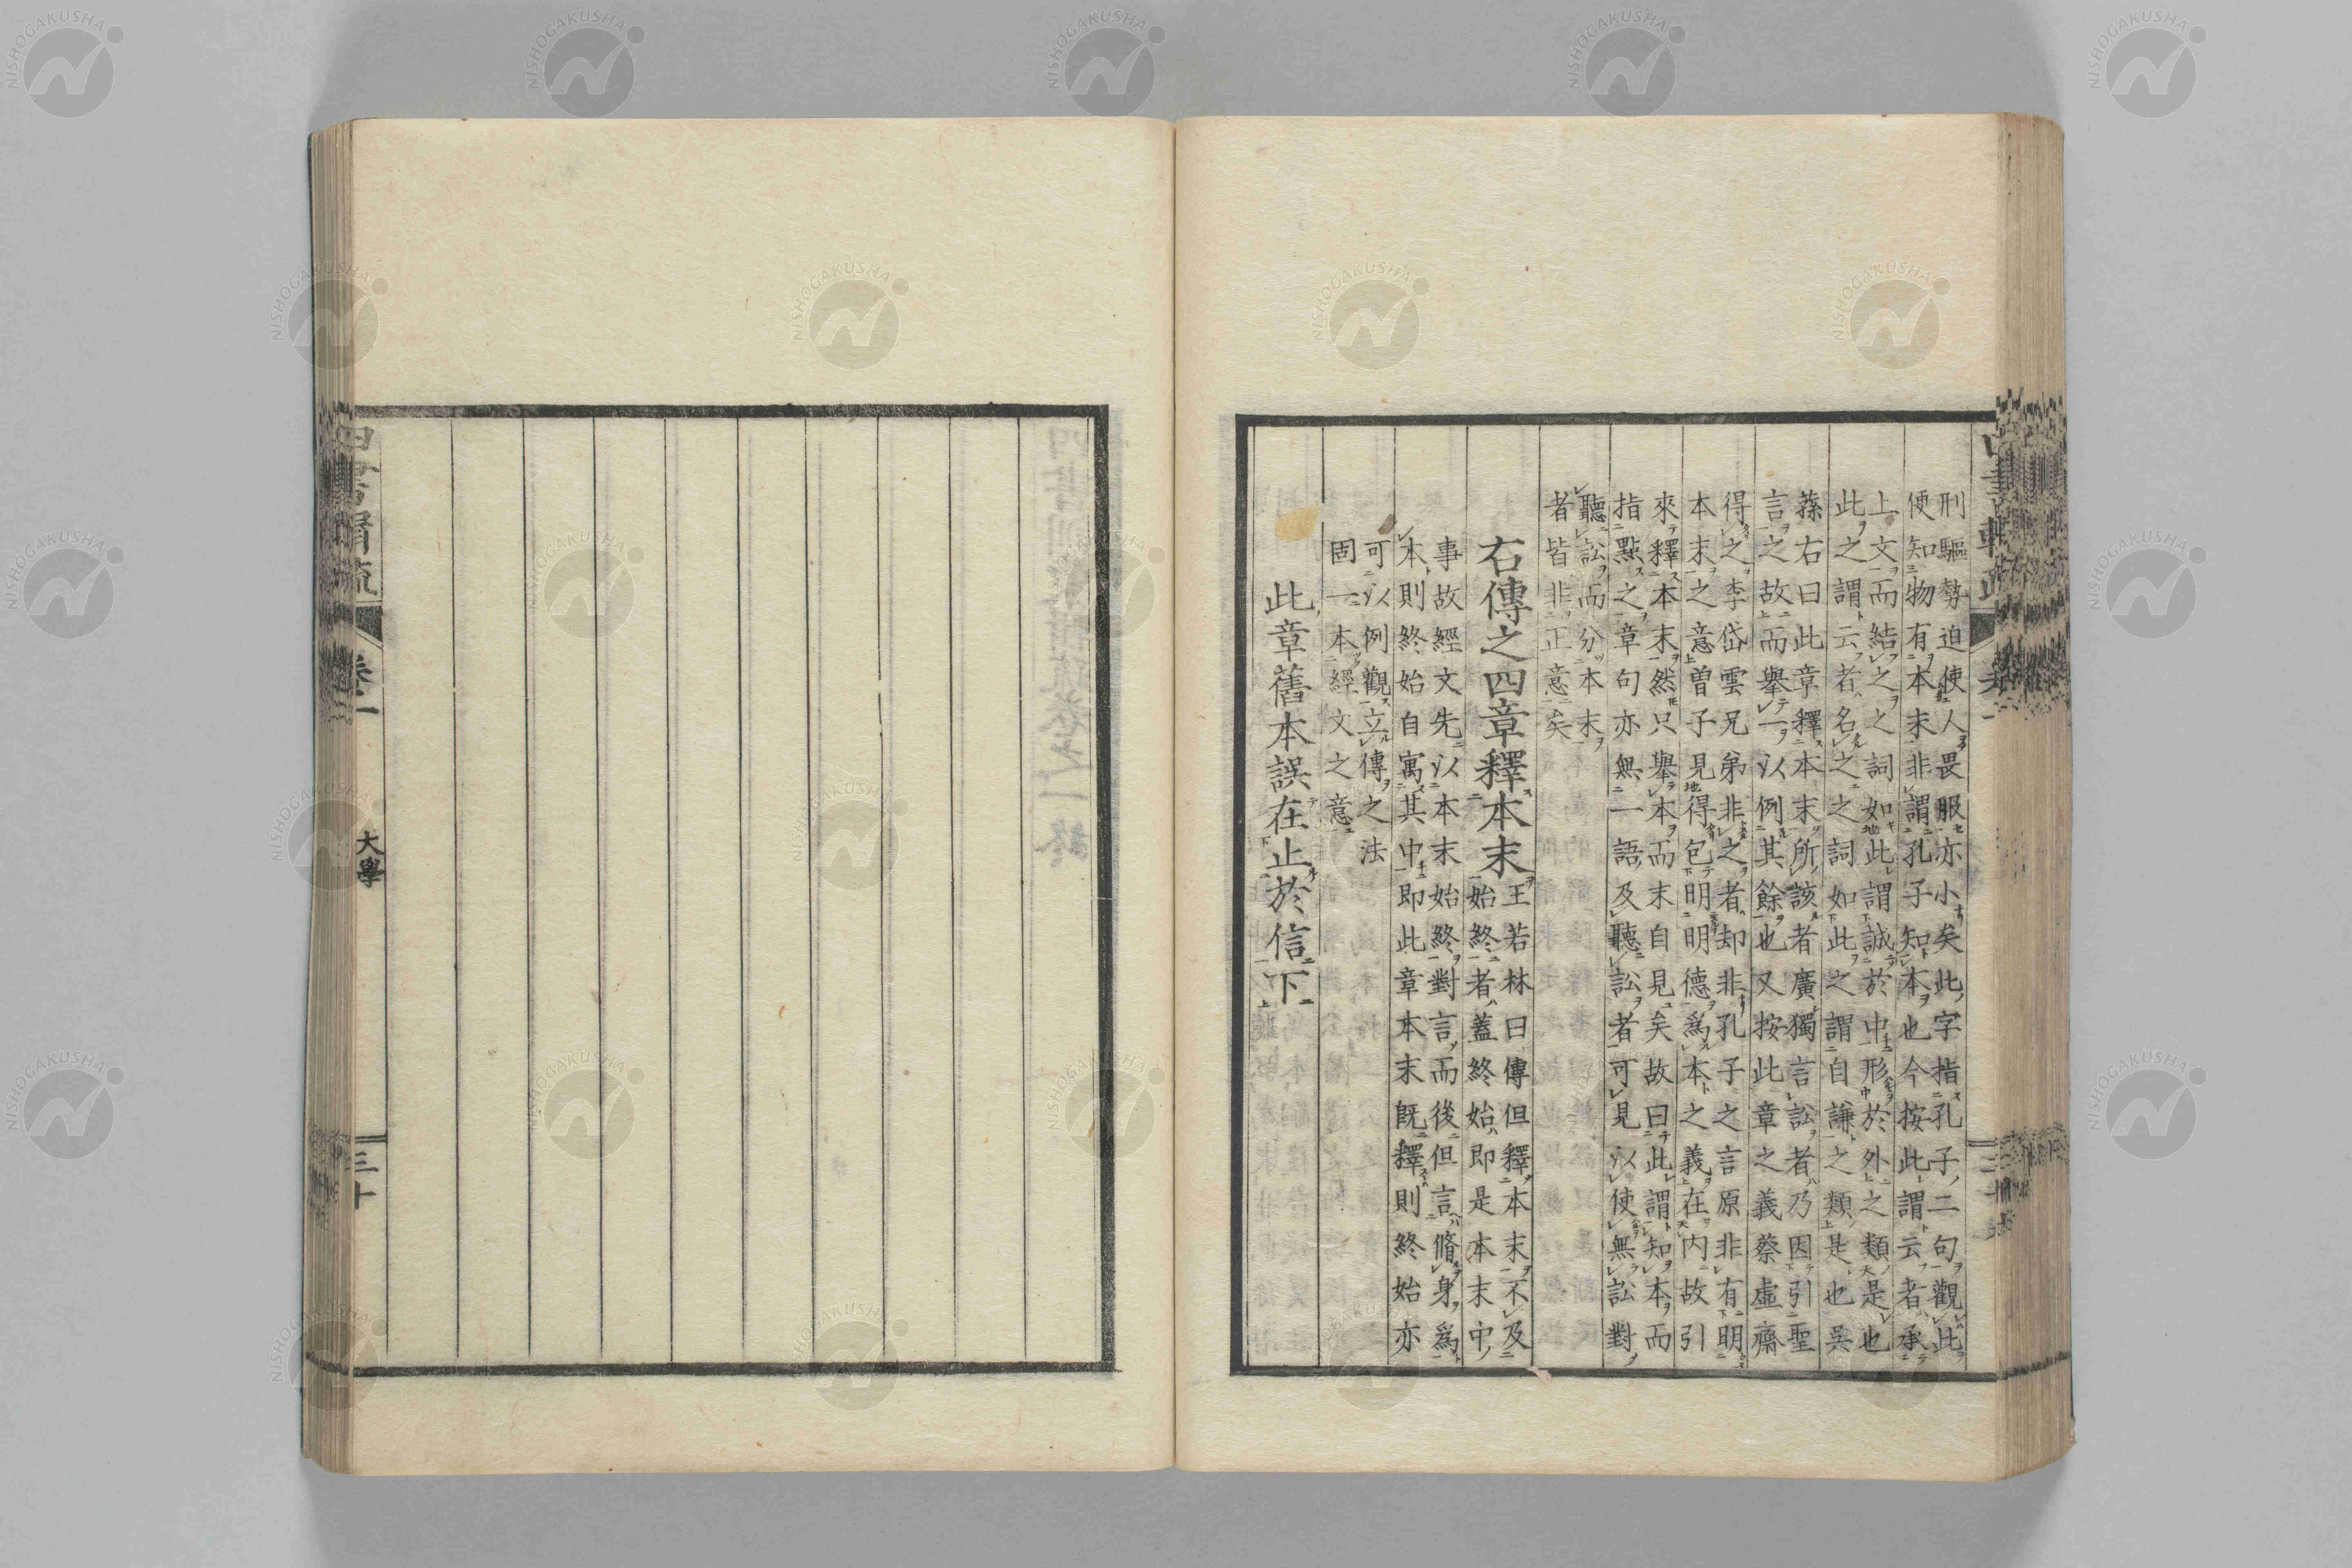 刑驅勢迫使人畏服亦小矣此字指孔子二句觀此
便知物有本末非謂孔子知本也今按此謂云者承
上文而結之之詞如此謂誠於中形於外之類是也
此之謂云者名之之詞如此之謂自謙之類是也吳
蓀右曰此章釋本末所該者廣獨言訟者乃因引聖
言之故而舉一以例其餘也又按此章之義蔡虛齋
得之李岱雲兄弟非之者却非孔子之言原非有明
本末之意曽子見得包明明德為本之義在內故引
來釋本末然只舉本而末自見矣故曰此謂知本而
指點之章句亦無一語及聽訟者可見以使無訟對
聽訟而分本末
者皆非正意矣
右傳之四章釋本末
王若林曰傳但釋本末不及
始終者蓋終始即是本末中
事故經文先以本末始終對言而後但言脩身為
本則終始自寓其中即此章本末既釋則終始亦
可以例觀立傳之法
固一本經文之意
此章舊本誤在止於信下
卷一
大學
三十
NISHOGAKUSHA